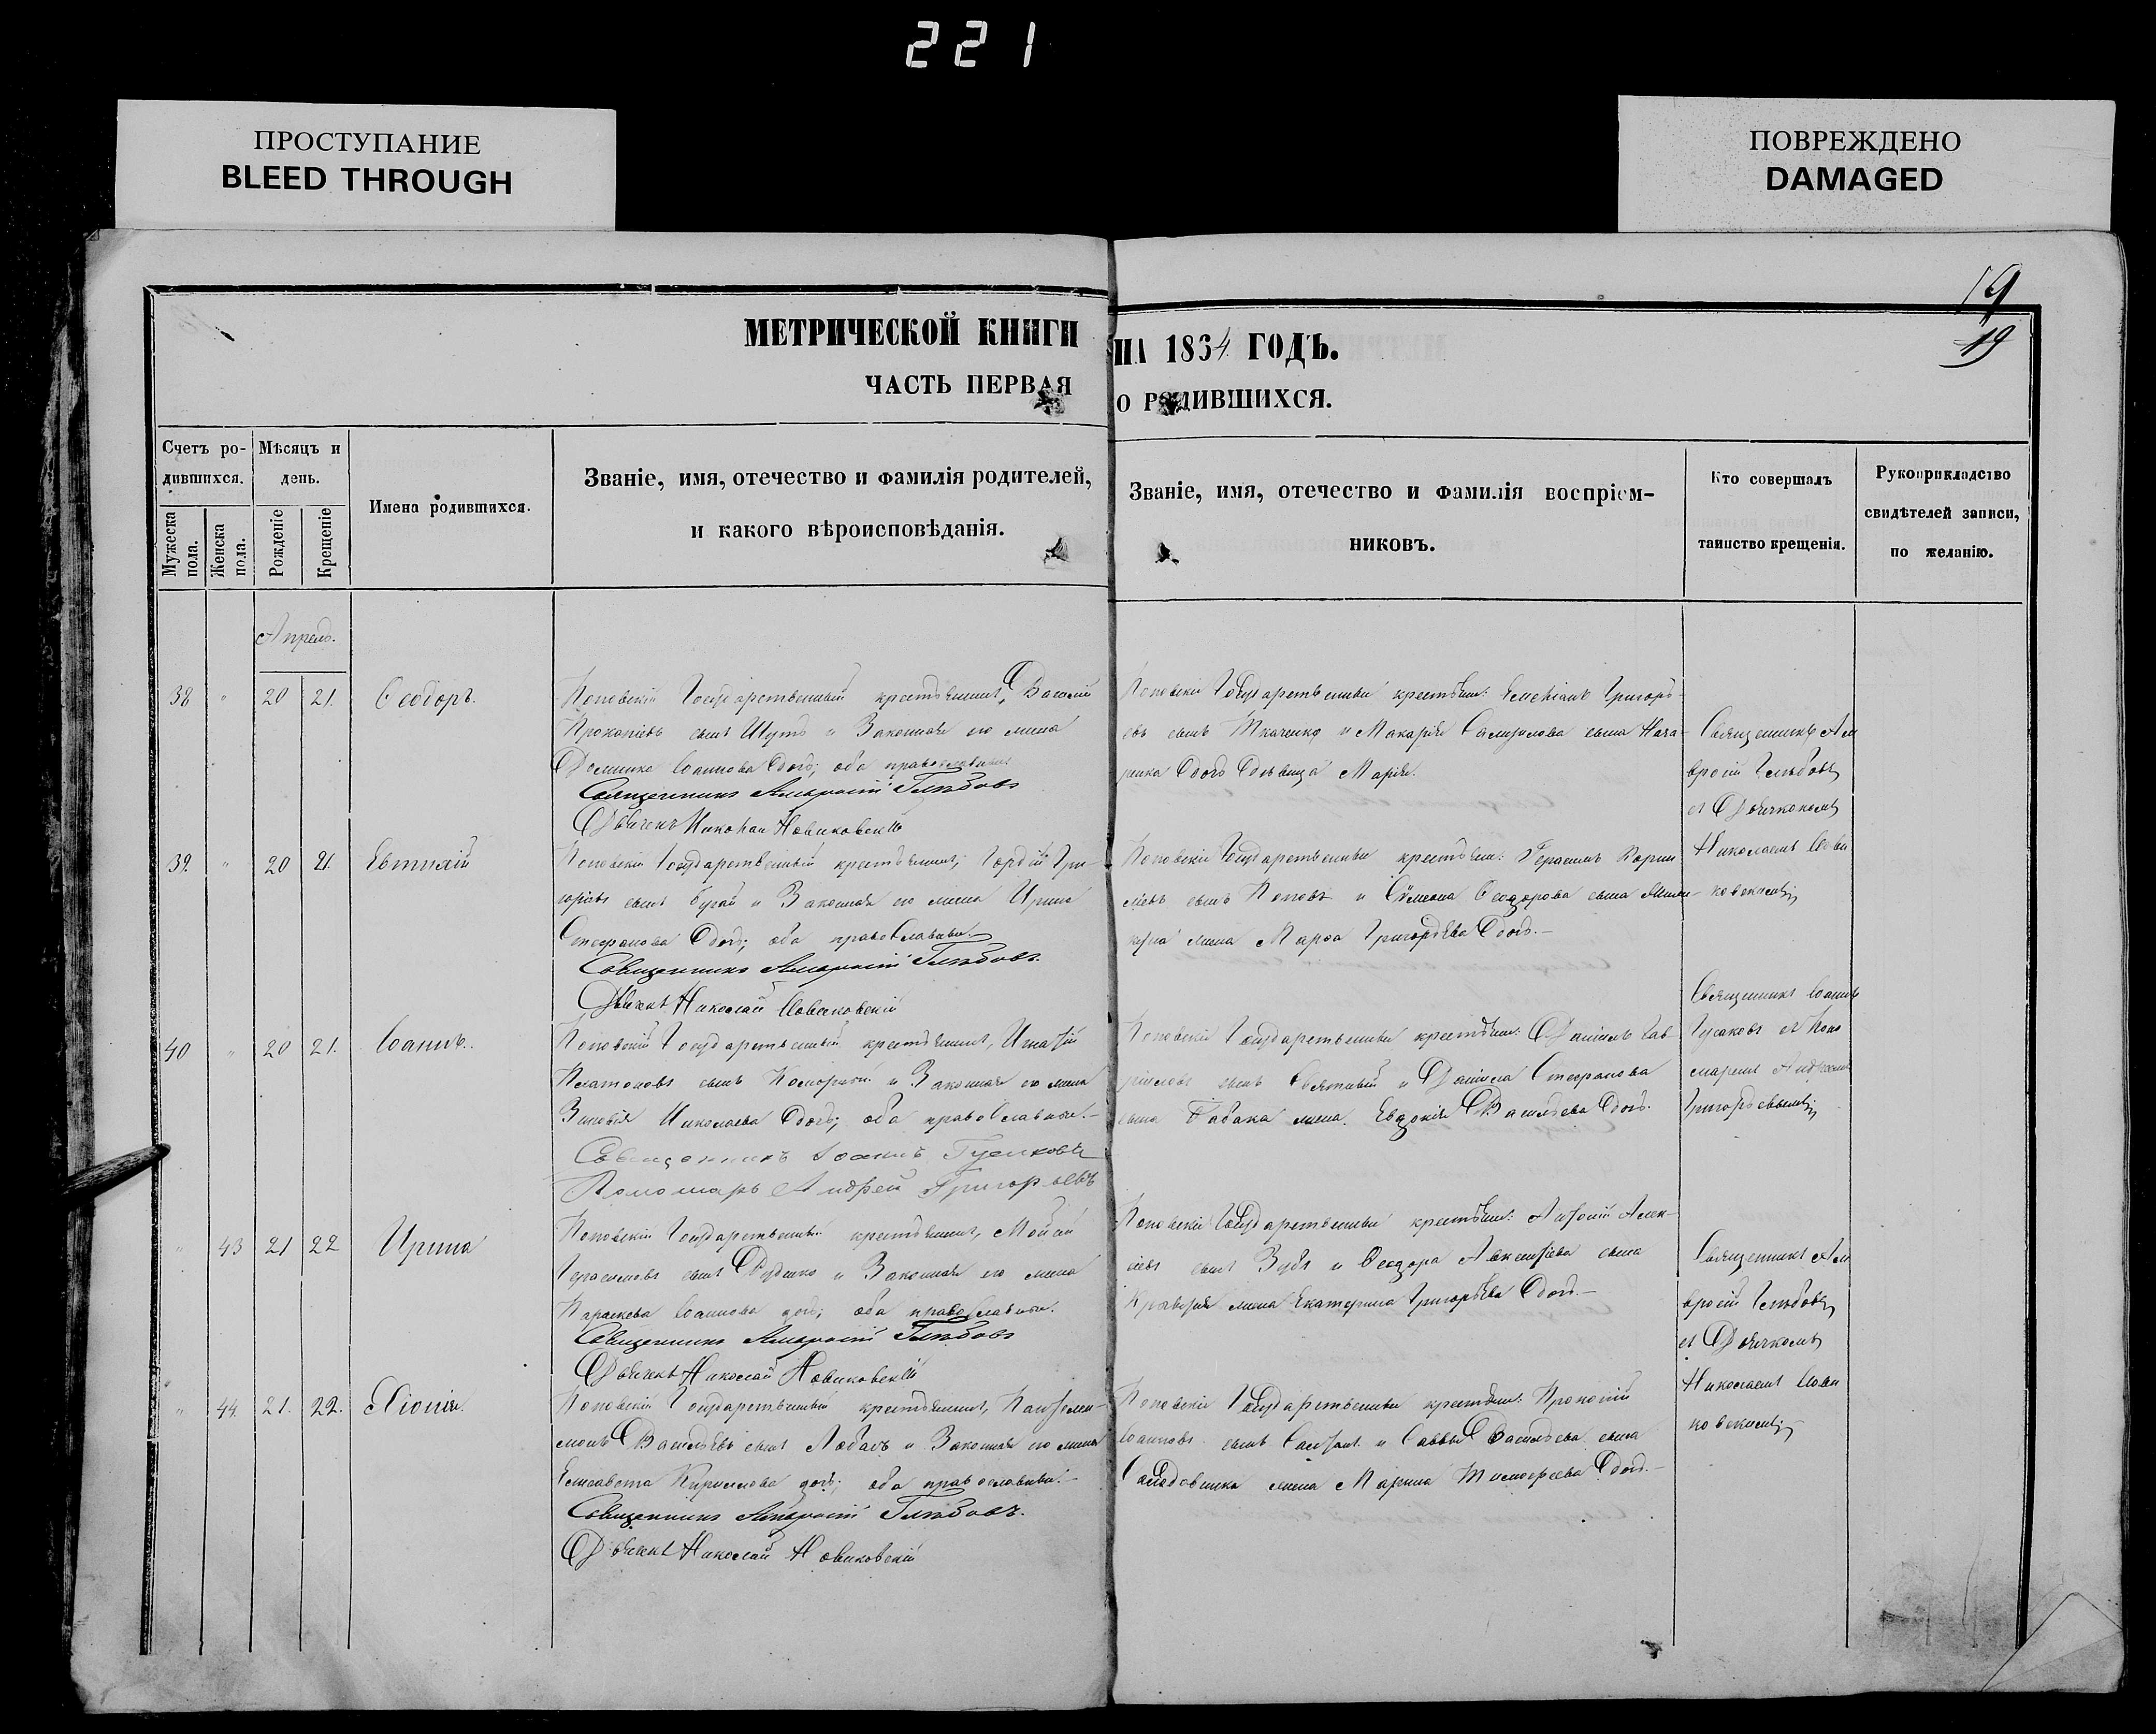 221
ПРОСТУПАНИЕ
BLEED THROUGH
ПОВРЕЖДЕНО
DAMAGED
19
19
МЕТРИЧЕСКОЙ КНИГИ НА 1834 ГОДЪ.
ЧАСТЬ ПЕРВАЯ О РОДИВШИХСЯ.
Счетъ ро-
дившихся.
Мужеска пола.
Женска пола.
Мѣсяцъ и
день.
Рожденіе
Крещеніе
Имена родившихся.
Званіе, имя, отечество и фамилія родителей,
и какого вѣроисповѣданія.
Званіе, имя, отечество и фамилія воспріем-
никовъ.
Кто совершалъ
таинство крещенія.
Рукоприкладство
свидѣтелей записи,
по желанію.
Апрель.
38 " 20 21. Ѳеодоръ.
Поповскій Государственный крестьянинъ, Василій
Прокопіевъ сынъ и Законная его жена
Іоаннова дочь; оба православные
Священникъ Амвросій Глѣбовъ
Дьячекъ Николай Новиковскій
Поповскіе Государственные крестьяне: Емеліанъ Григорь-
евъ сынъ Ткаченко и Макарія сына
дочь Дѣвица Марія.
Священникъ Ам
вросій Глѣбовъ
съ Дьячкомъ
Николаемъ Нови
ковскимъ
39. " 20 21. Евтихій
Поповскій Государственный крестьянинъ, Гордій Гри-
горіевъ сынъ Бугай и Законная его жена Ирина
Стефанова дочь; оба православные.
Священникъ Амвросій Глѣбовъ.
Дьячекъ Николай Новиковскій
Поповскіе Государственные крестьяне: Герасимъ Корни
ліевъ сынъ Поповъ и Сѵмеона Ѳеодорова сына
жена Марѳа Григорьева дочь.-
40 " 20 21. Іоаннъ.
Поповскій Государственный крестьянинъ, Игнатій
Платоновъ сынъ и Законная его жена
Зиновія Николаева дочь; оба православные.-
Священникъ Іоаннъ Гусаковъ
Пономарь Андрей Григорьевъ
Поповскіе Государственные крестьяне: Даніилъ Гав-
риловъ сынъ и Даніила Стефанова
сына Бабака жена Евдокія Васильева дочь.
Священникъ Іоаннъ
Гусаковъ съ Поно
маремъ Андреемъ
Григорьевымъ
" 43 21 22 Ирина
Поповскій Государственный крестьянинъ, Мойсей
Герасимовъ сынъ Дудко и Законная его жена
Параскева Іоаннова дочь; оба православные.
Священникъ Амвросій Глѣбовъ
Дьячекъ Николай Новиковскій
Поповскіе Государственные крестьяне: Антоній Алек-
сіевъ сынъ Зубъ и Ѳеодора Авксентіева сына
жена Екатерина Григорьева дочь.-
Священникъ Ам
вросій Глѣбовъ
съ Дьячкомъ
Николаемъ Нови
ковскимъ
" 44. 21. 22. Хіонія.
Поповскій Государственный крестьянинъ, Пантелеи-
монъ Васильевъ сынъ Лобасъ и Законная его жена
Елисавета Кириллова дочь; оба православные.-
Священникъ Амвросій Глѣбовъ.
Дьячекъ Николай Новиковскій
Поповскіе Государственные крестьяне: Прокопій
Іоанновъ сынъ и Саввы Васильева сына
жена Марина Тимоѳеева дочь.-